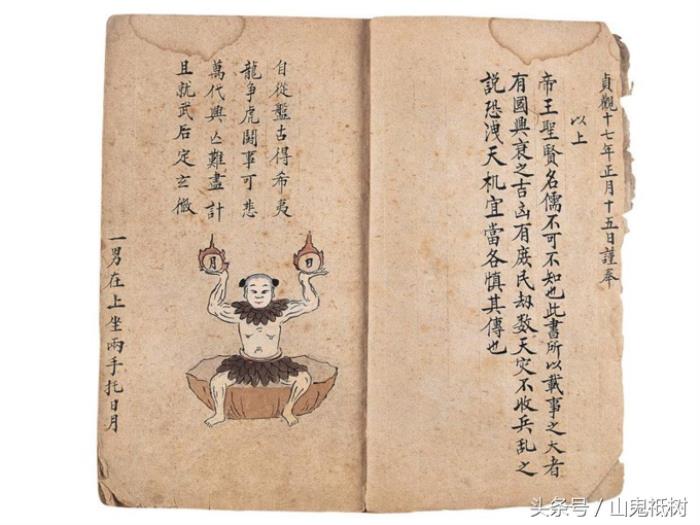 貞觀十七年正月十五日謹奉
以上
帝王聖賢名儒不可不知也此書所以載事之大者
有國興衰之吉凶有庶民劫数天灾不收兵乱之
説恐洩天机宜當各慎其傳也
自從盤古得希夷
龍争虎鬪事可悲
萬代興亡難盡計
且就武后定玄微
日
月
一男在上坐兩手托日月
头条号／山鬼祗树